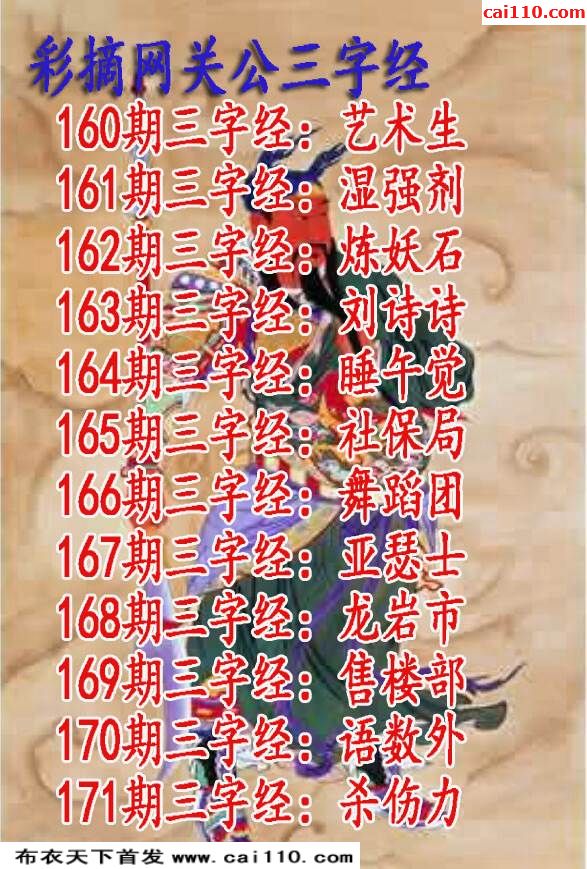 cai110.com
彩摘网关公三字经
160期三字经：艺术生
161期三字经：湿强剂
162期三字经：炼妖石
163期三字经：刘诗诗
164期三字经：睡午觉
165期三字经：社保局
166期三字经：舞蹈团
167期三字经：亚瑟士
168期三字经：龙岩市
169期三字经：售楼部
170期三字经：语数外
171期三字经：杀伤力
布衣天下首发 www.cai110.com